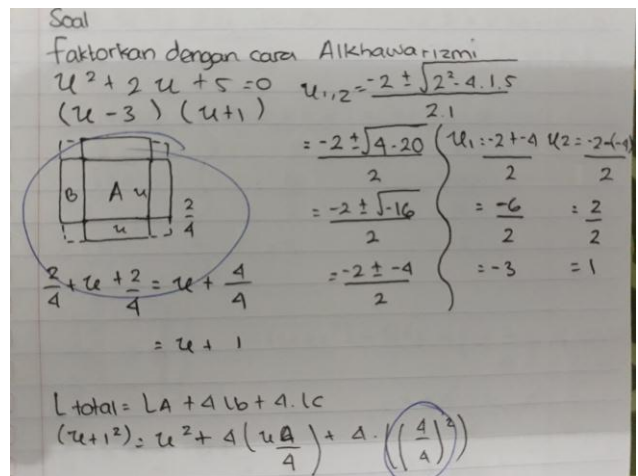 Soal
Faktorkan dengan cara Alkhawarizmi
x² + 2x + 5 = 0
(x - 3) (x + 1)
B A x
x
2/4
2/4 + x + 2/4 = x + 4/4
= x + 1
x₁,₂ = (-2 ± √(2² - 4.1.5))/2.1
= (-2 ± √(4 - 20))/2
= (-2 ± √-16)/2
= (-2 ± -4)/2
x₁ = (-2 + -4)/2
= -6/2
= -3
x2 = (-2 - (-4))/2
= 2/2
= 1
L total = LA + 4 Lb + 4. Lc